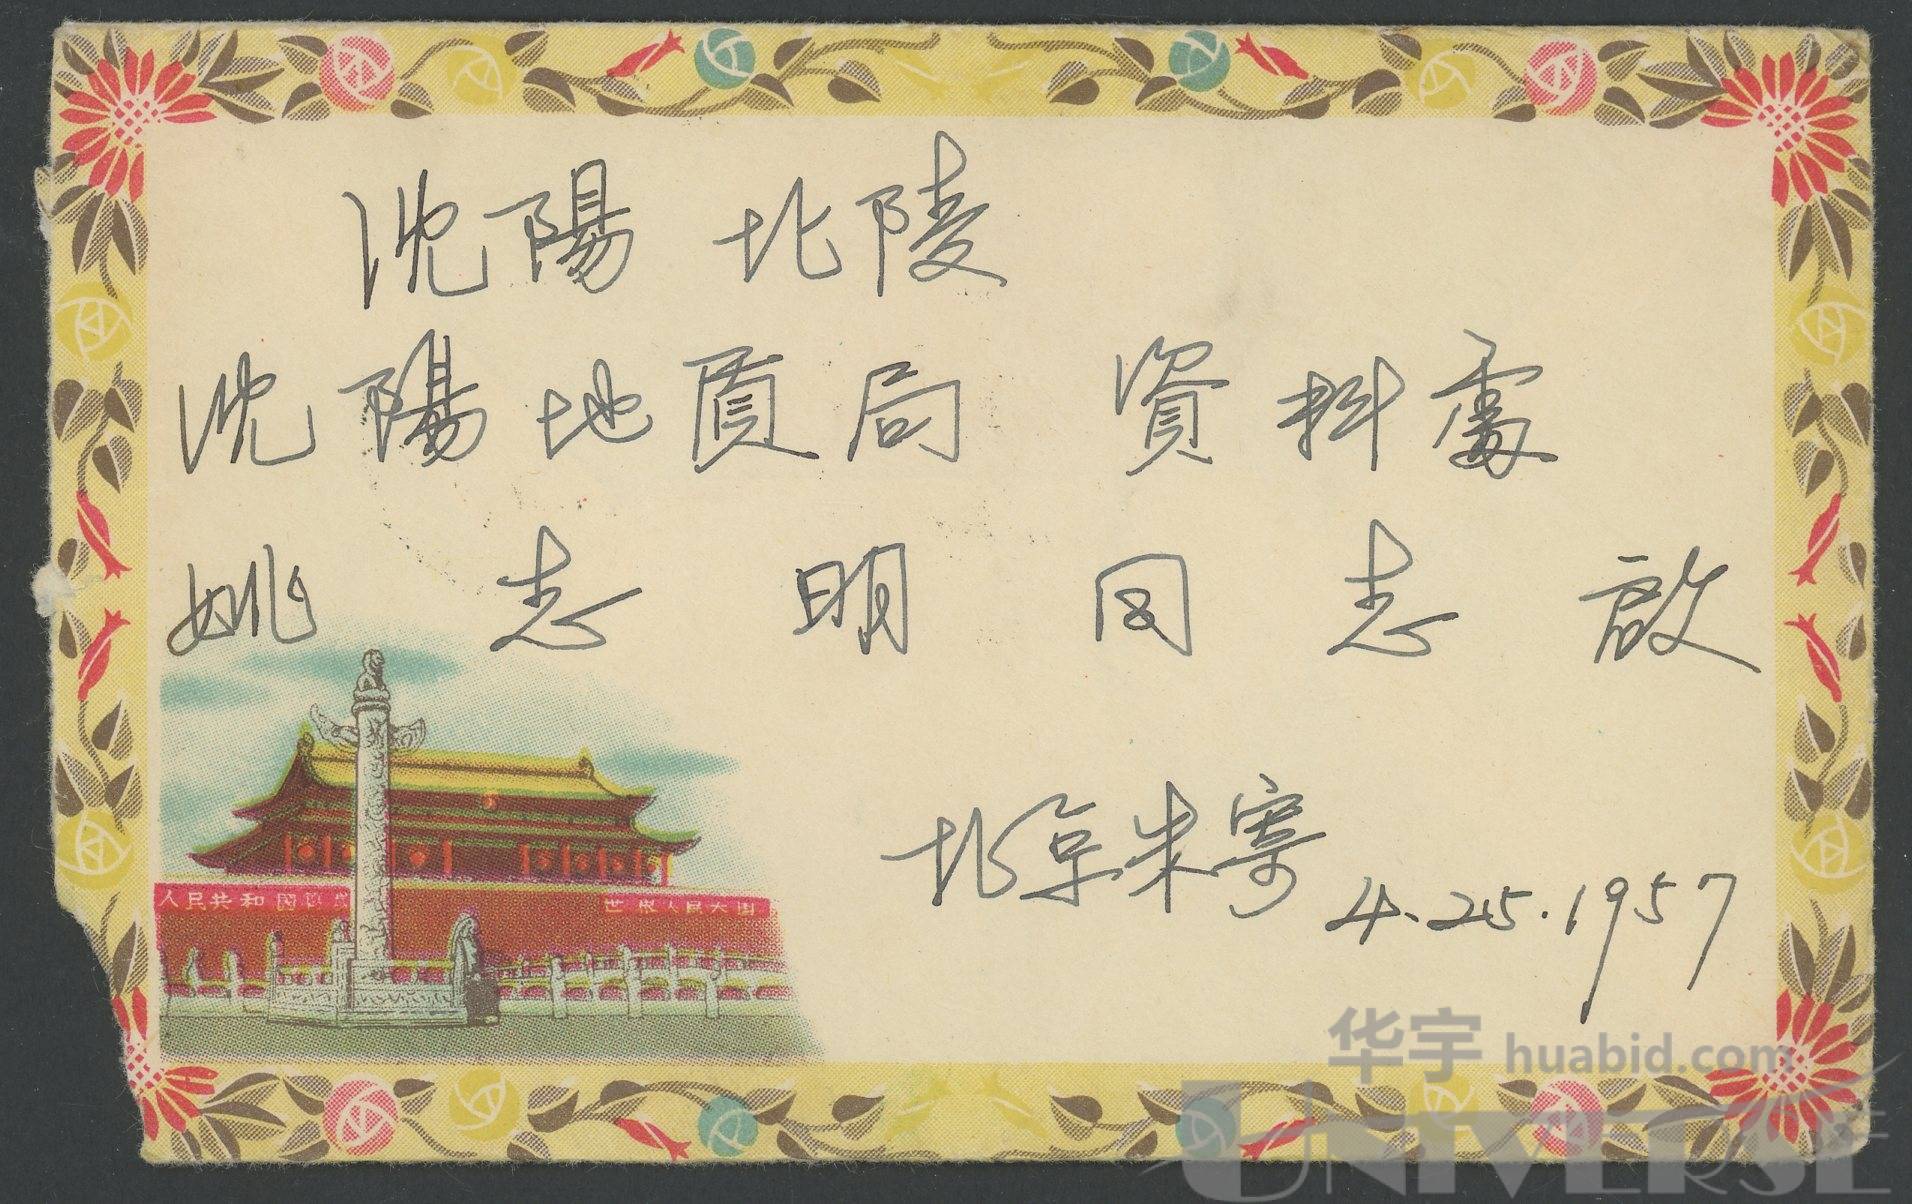 沈陽 北陵
沈陽地質局 資料處
姚志明同志啟
北京朱寄
4.25.1957
人民共和國
世界人民大团
华宇 huabid.com
UNIVERSE